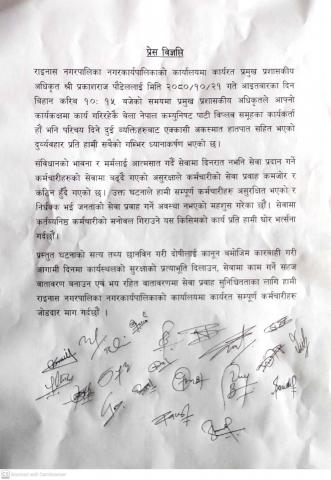 प्रेस विज्ञप्ति
राइनास नगरपालिका नगरकार्यपालिकाको कार्यालयमा कार्यरत प्रमुख प्रशासकीय
अधिकृत श्री प्रकाशराज पौडेललाई मिति २०८०/१०/२१ गते आइतवारका दिन
विहान करिव १०: १५ बजेको समयमा प्रमुख प्रशासकीय अधिकृतले आफ्नो
कार्यकक्षमा कार्य गरिरहेकै वेला नेपाल कम्युनिष्ट पाटी विप्लव समूहका कार्यकर्ता
हौं भनि परिचय दिने दुई व्यक्तिहरुबाट एक्कासी अकस्मात हातपात सहित भएको
दुर्व्यवहार प्रति हामी सबैको गम्भिर ध्यानाकर्षण भएको छ।
संविधानको भावना र मर्मलाई आत्मसात गर्दै सेवामा दिनरात नभनि सेवा प्रदान गर्ने
कर्मचारीहरुको सेवामा बढ्दै गएको असुरक्षाले कर्मचारीको सेवा प्रवाह कमजोर र
कठिन हुँदै गएको छ। उक्त घटनाले हामी सम्पूर्ण कर्मचारीहरु असुरक्षित भएको र
निर्धक्क भई जनताको सेवा प्रवाह गर्ने अवस्था नभएको महशुस गरेका छौं। सेवामा
कर्तव्यनिष्ठ कर्मचारीको मनोवल गिराउने यस किसिमको कार्य प्रति हामी घोर भर्त्सना
गर्दछौं।
प्रस्तुत घटनाको सत्य तथ्य छानविन गरी दोषीलाई कानून बमोजिम कारवाही गरी
आगामी दिनमा कार्यस्थलको सुरक्षाको प्रत्याभूति दिलाउन, सेवामा काम गर्ने सहज
वातावरण बनाउन एवं भय रहित वातावरणमा सेवा प्रवाह सुनिश्चितताका लागि हामी
राइनास नगरपालिका नगरकार्यपालिकाको कार्यालयमा कार्यरत सम्पूर्ण कर्मचारीहरु
जोडदार माग गर्दछौं।
CS Scanned with CamScanner